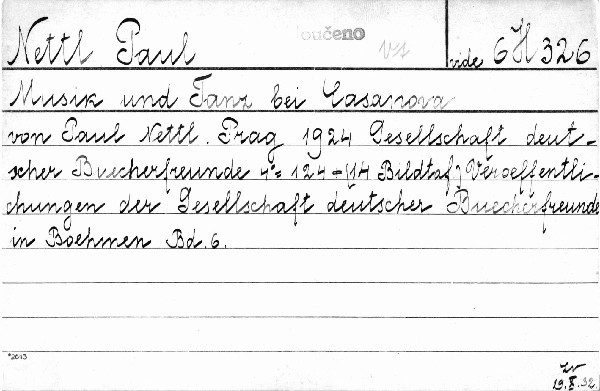 Nettl Paul
oučeno
vide 6 H 326
Musik und Tanz bei Casanova
von Paul Nettl. Prag 1924 Gesellschaft deut-
scher Buecherfreunde 4° 124 + (14 Bildtaf) Veroeffentli-
chungen der Gesellschaft deutscher Buecherfreunde
in Boehmen Bd. 6.
*2643
19.X.32